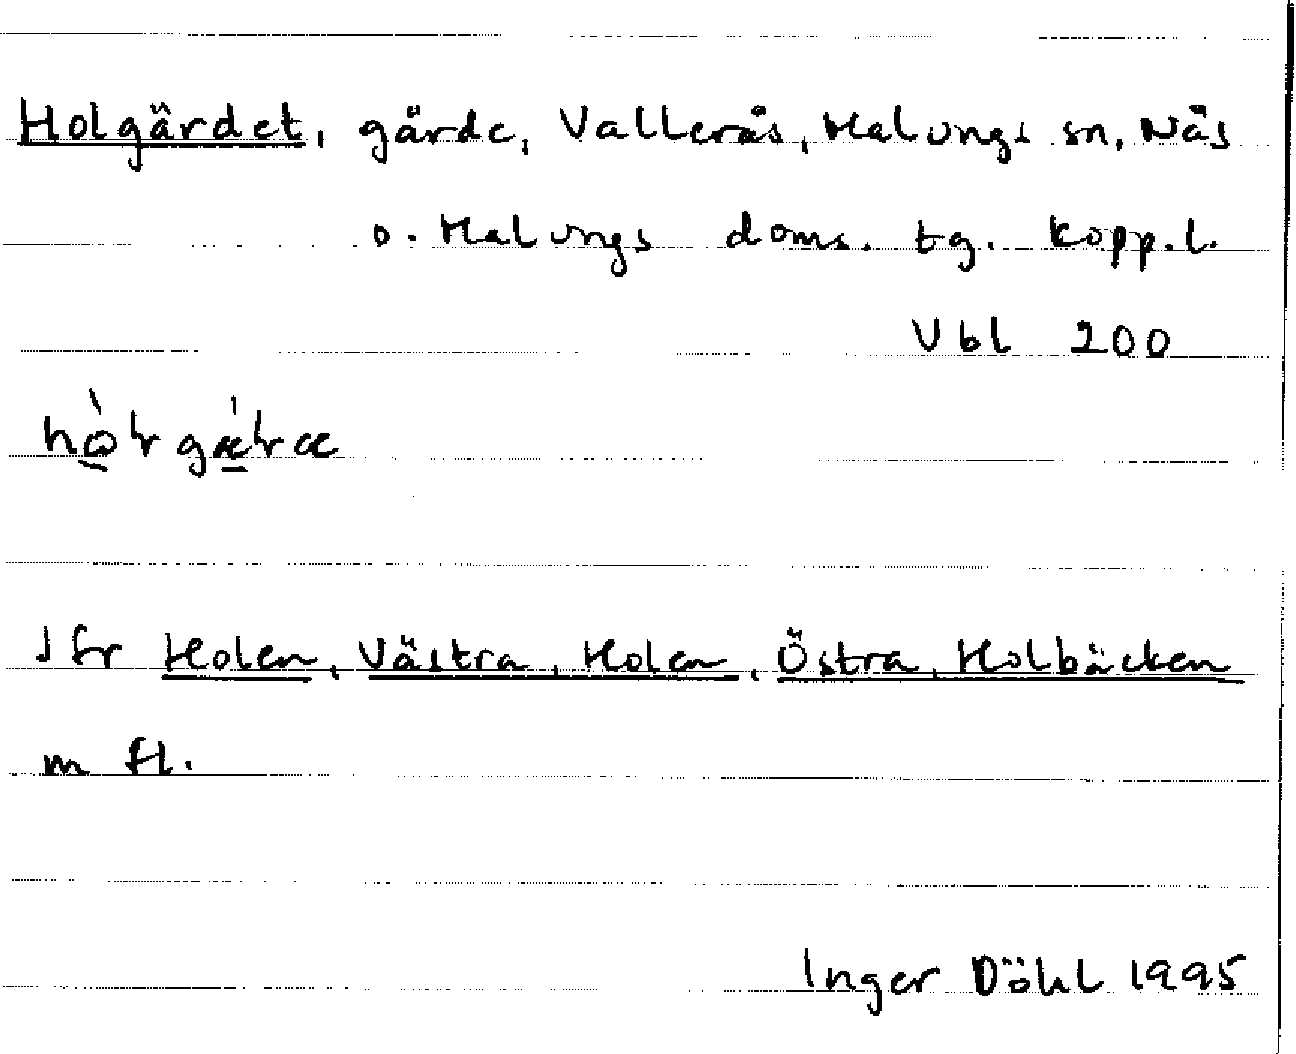 Holgärdet, gärde, Vallerås, Malungs sn, Näs
o. Malungs doms. tg. Kopp.l.
Vbl 200
Jfr Holen, Västra, Holen, Östra, Holbäcken
m fl.
Inger Döhl 1995